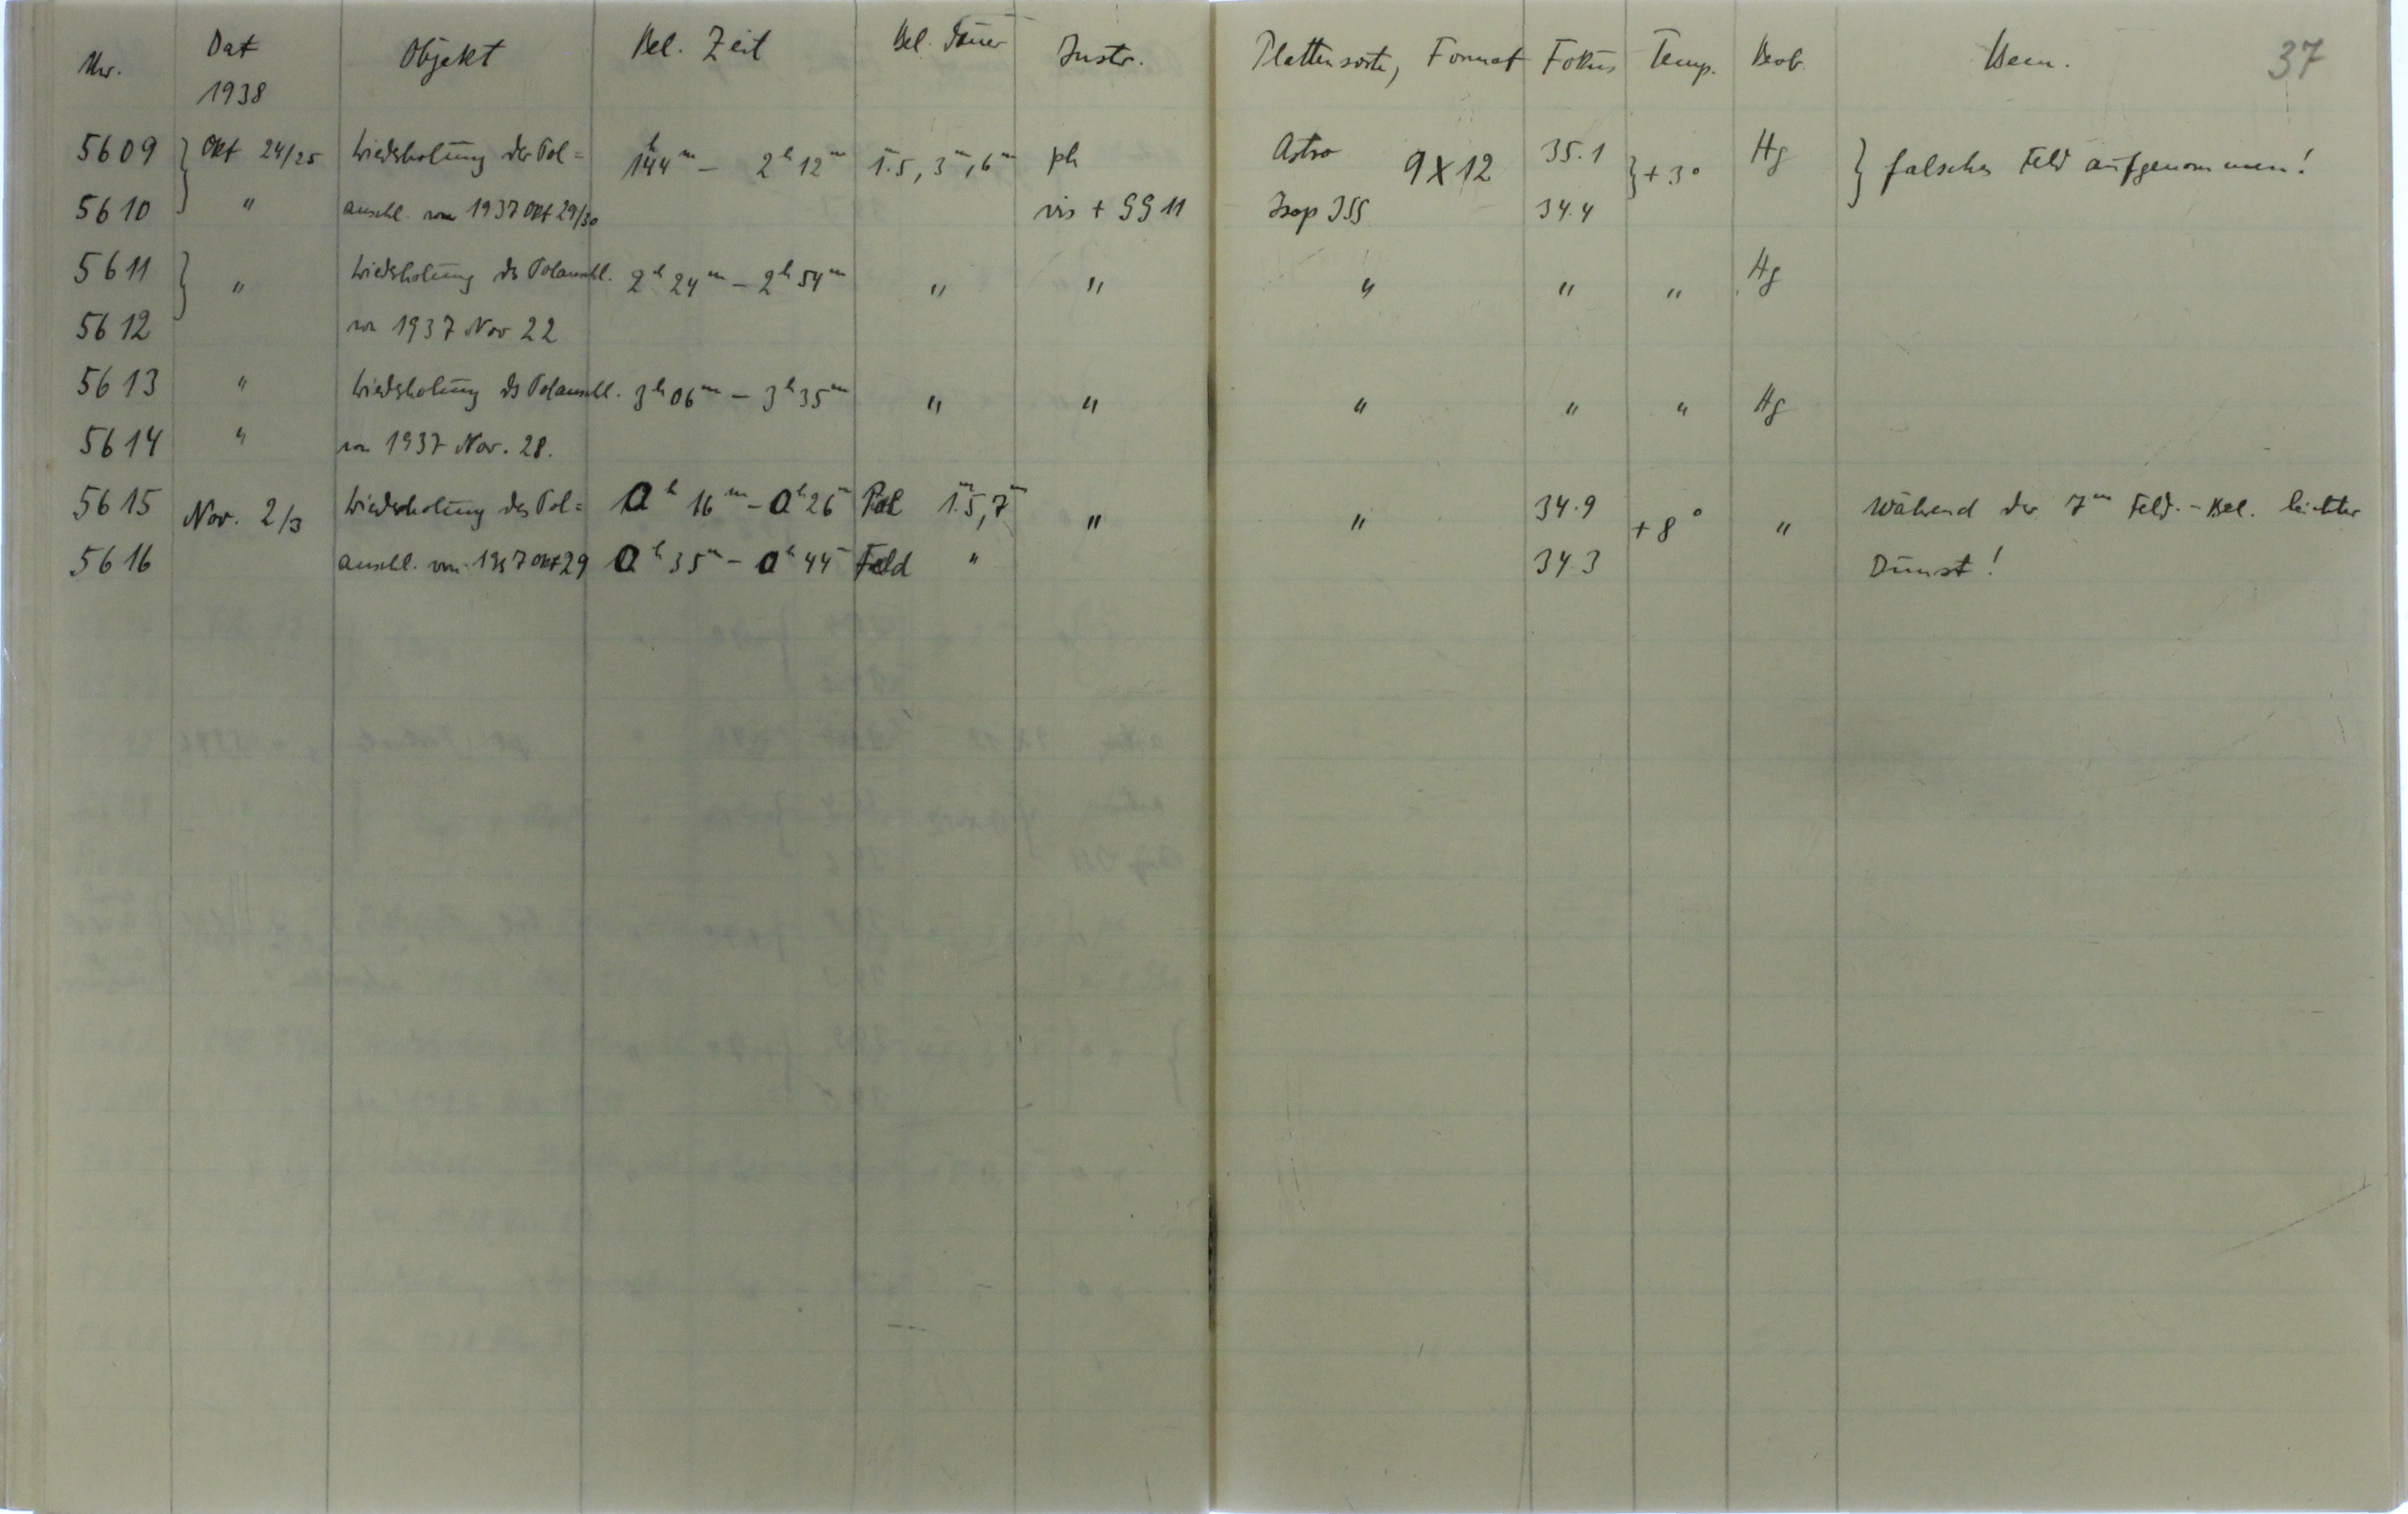 Nr. Dat Objekt Bel. Zeit Bel. Dauer Instr. Plattensorte, Format Fokus Temp. Beob. Bem. 37
1938
5609 } Okt 24/25 Wiederholung der Pol= 1h44m – 2h12m 1m.5, 3m, 6m ph Astro 9X12 35.1 } +3° Hg } falsches Feld aufgenommen!
5610 " anschl. von 1937 Okt 29/30 vis + GG 11 Isop ISS 34.4
5611 } " Wiederholung ds Polanschl. 2h 24m – 2h 54m " " " " " Hg
5612 von 1937 Nov 22
5613 " Wiederholung ds Polanschl. 3h 06m – 3h 35m " " " " " Hg
5614 " von 1937 Nov. 28.
5615 Nov. 2/3 Wiederholung des Pol= 0h 16m – 0h 26m Pol 1m.5, 7m " " 34.9 +8° " Während der 7m Feld.-Bel. leichter
5616 anschl. von 1937 Okt 29 0h 35m – 0h 44m Feld " 34.3 Dunst!